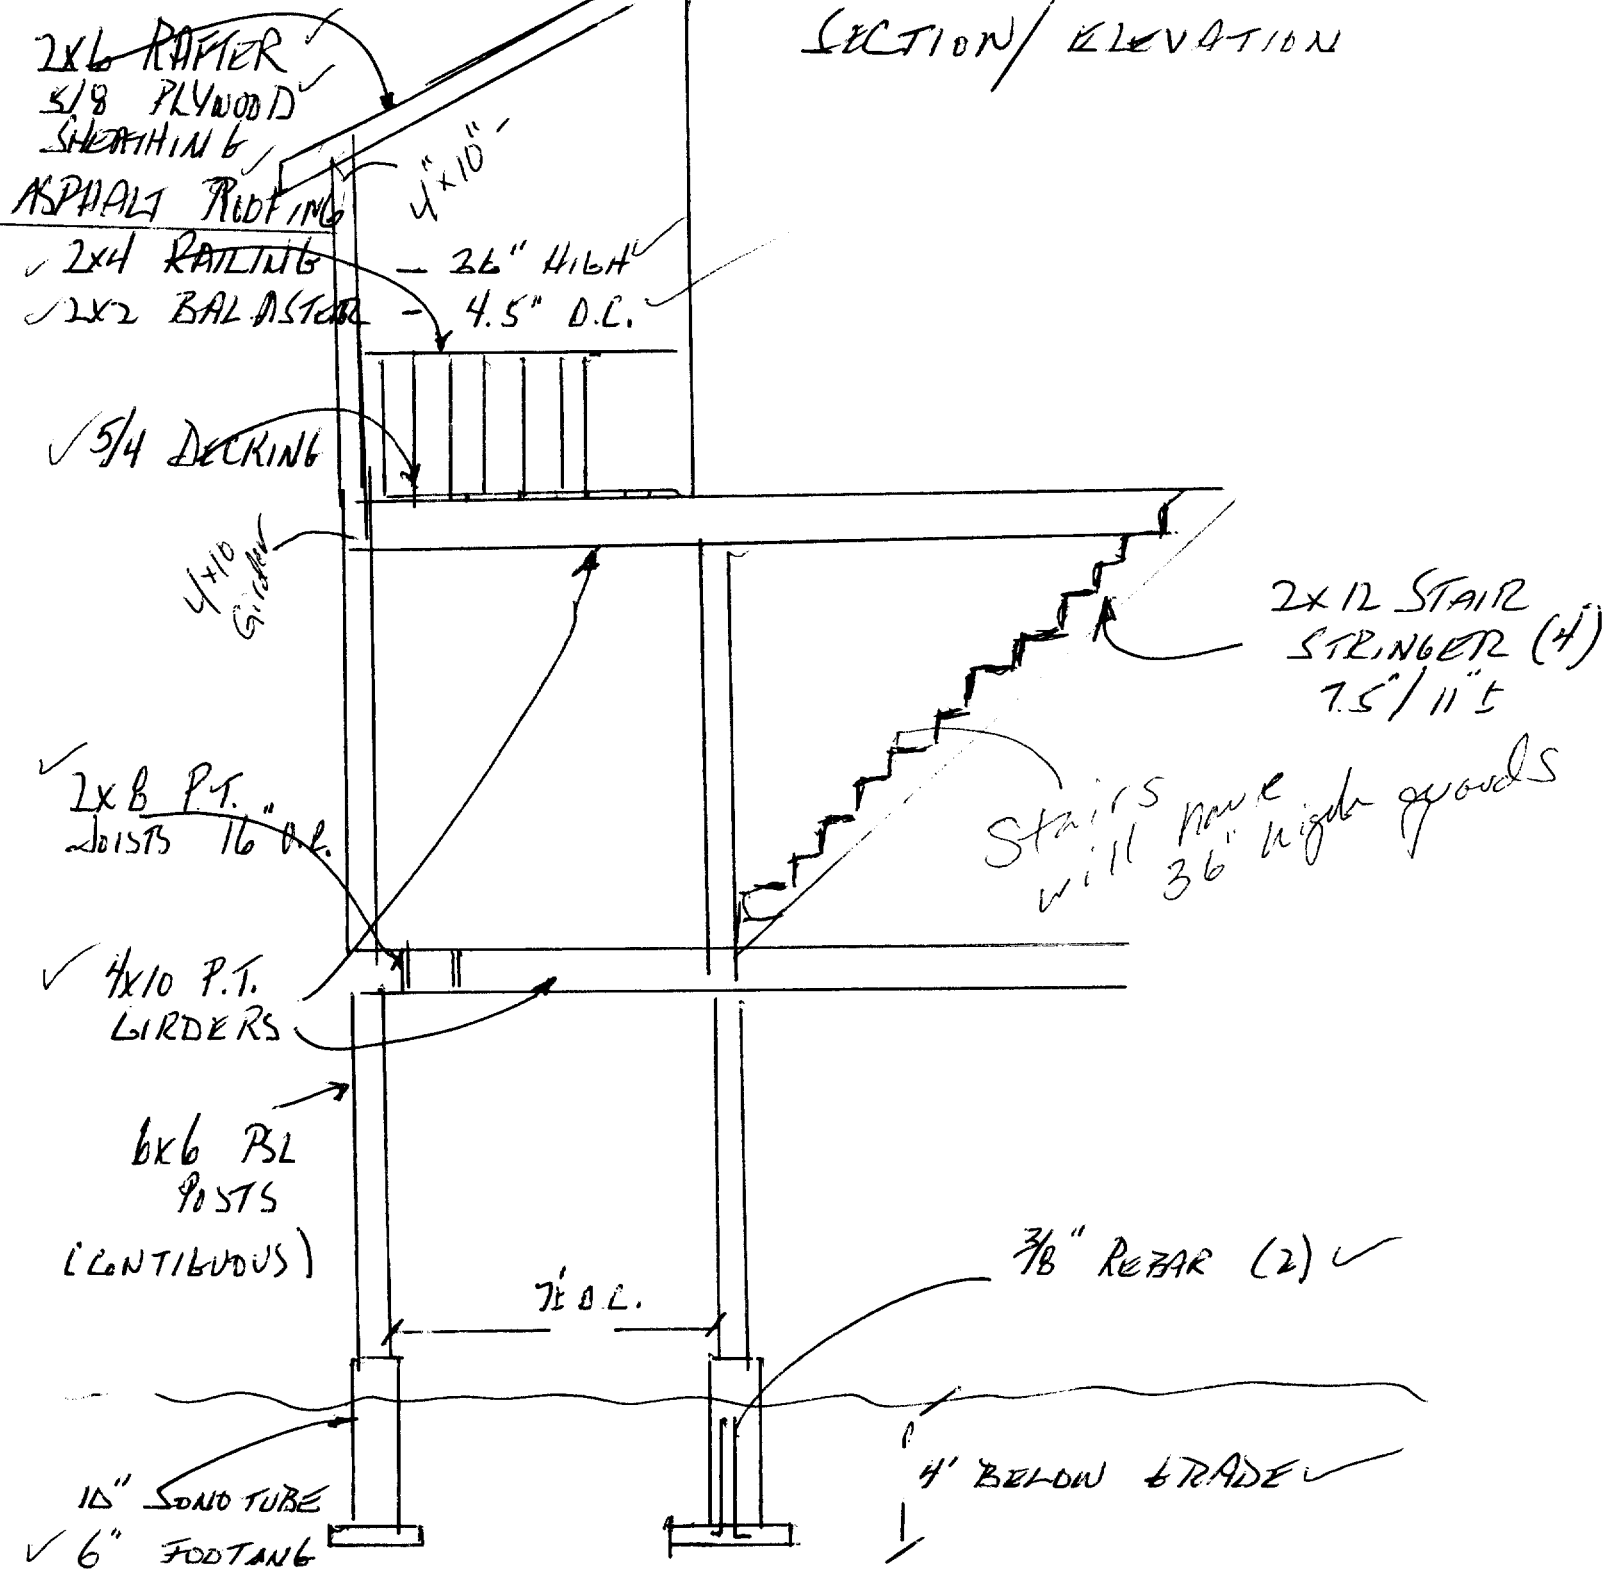 SECTION/ ELEVATION
2X6 RAFTER
5/8 PLYWOOD
SHEATHING
ASPHALT ROOFING
4"x10"
2X4 RAILING - 36" HIGH
2X2 BALASTER - 4.5" O.C.
5/4 DECKING
4x10
Girder
2X12 STAIR
STRINGER (4)
7.5"/11"±
Stairs
will have
36" high guards
2X8 P.T.
JOISTS 16" O.C.
4X10 P.T.
GIRDERS
6X6 PSL
POSTS
(CONTIGUOUS)
7'± O.C.
3/8" REBAR (2)
4' BELOW GRADE
10" SONOTUBE
6" FOOTANG